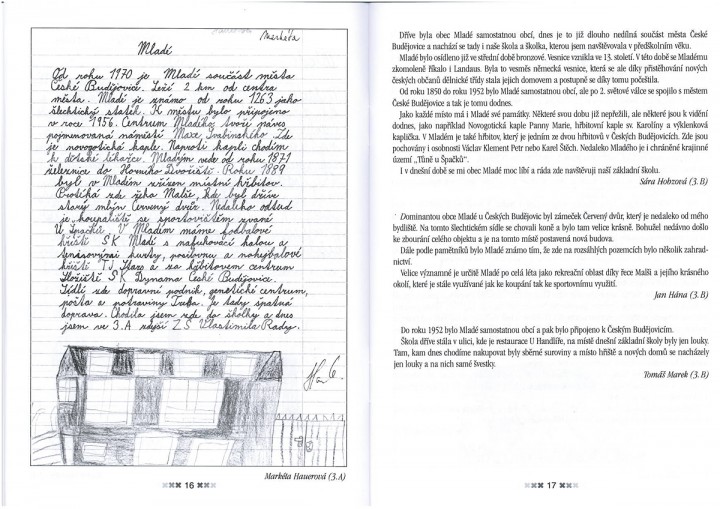 Markéta
Mladí
Od roku 1970 je Mladí součást města
České Budějovice. Leží 2 km od centra
města. Mladí je známo od roku 1263 jako
šlechtický statek. K městu bylo připojeno
v roce 1956. Centrem Mladého tvoří právo
pojmenovaná náměstí Maxe Švabinského. Zde
je novogotická kaple. Naproti kapli chodím
k dětské lékařce. Mladým vede od roku 1871
železnice do Horního Dvořiště. Roku 1889
byl v Mladém zřízen místní hřbitov.
Protéká zde řeka Malše, kde byl dříve
starý mlýn Červený dvůr. Nedaleko odtud
je koupaliště se sportovištěm zvané
U Špačků. V Mladém máme fotbalové
hřiště SK Mladé s nafukovací halou a
tenisovými kurty, posilovnu a nohejbalové
hřiště TJ Slavoj a za hřbitovem centrum
Složiště SK Dynama České Budějovice.
Sídlí zde dopravní podnik, genetické centrum,
pošta a potraviny Trefa. Je tady špatná
doprava. Chodila jsem zde do školky a dnes
jsem ve 3.A zdejší ZŠ Vlastimila Rady.
Markéta Hauerová (3. A)
16
Dříve byla obec Mladé samostatnou obcí, dnes je to již dlouho nedílná součást města České
Budějovice a nachází se tady i naše škola a školka, kterou jsem navštěvovala v předškolním věku.
Mladé bylo osídleno již ve střední době bronzové. Vesnice vznikla ve 13. století. V té době se Mladému
zkomoleně říkalo i Landaus. Byla to vesměs německá vesnice, která se ale díky přistěhování nových
českých občanů dělnické třídy stala jejich domovem a postupně se díky tomu počeštila.
Od roku 1850 do roku 1952 bylo Mladé samostatnou obcí, ale po 2. světové válce se spojilo s městem
České Budějovice a tak je tomu dodnes.
Jako každé místo má i Mladé své památky. Některé svou dobu již nepřežili, ale některé jsou k vidění
dodnes, jako například Novogotická kaple Panny Marie, hřbitovní kaple sv. Karolíny a výklenková
kaplička. V Mladém je také hřbitov, který je jedním ze dvou hřbitovů v Českých Budějovicích. Zde jsou
pochovány i osobnosti Václav Klement Petr nebo Karel Štěch. Nedaleko Mladého je i chráněné krajinné
území „Tůně u Špačků".
I v dnešní době se mi obec Mladé moc líbí a ráda zde navštěvuji naší základní školu.
Sára Hobzová (3. B)
Dominantou obce Mladé u Českých Budějovic byl zámeček Červený dvůr, který je nedaleko od mého
bydliště. Na tomto šlechtickém sídle se chovali koně a bylo tam velice krásně. Bohužel nedávno došlo
ke zbourání celého objektu a je na tomto místě postavená nová budova.
Dále podle pamětníků bylo Mladé známo tím, že zde na rozsáhlých pozemcích bylo několik zahrad-
nictví.
Velice významné je určitě Mladé po celá léta jako rekreační oblast díky řece Malši a jejího krásného
okolí, které je stále využívané jak ke koupání tak ke sportovnímu využití.
Jan Hána (3. B)
Do roku 1952 bylo Mladé samostatnou obcí a pak bylo připojeno k Českým Budějovicím.
Škola dříve stála v ulici, kde je restaurace U Handlíře, na místě dnešní základní školy byly jen louky.
Tam, kam dnes chodíme nakupovat byly sběrné suroviny a místo hřiště a nových domů se nacházely
jen louky a na nich samé švestky.
Tomáš Marek (3. B)
17